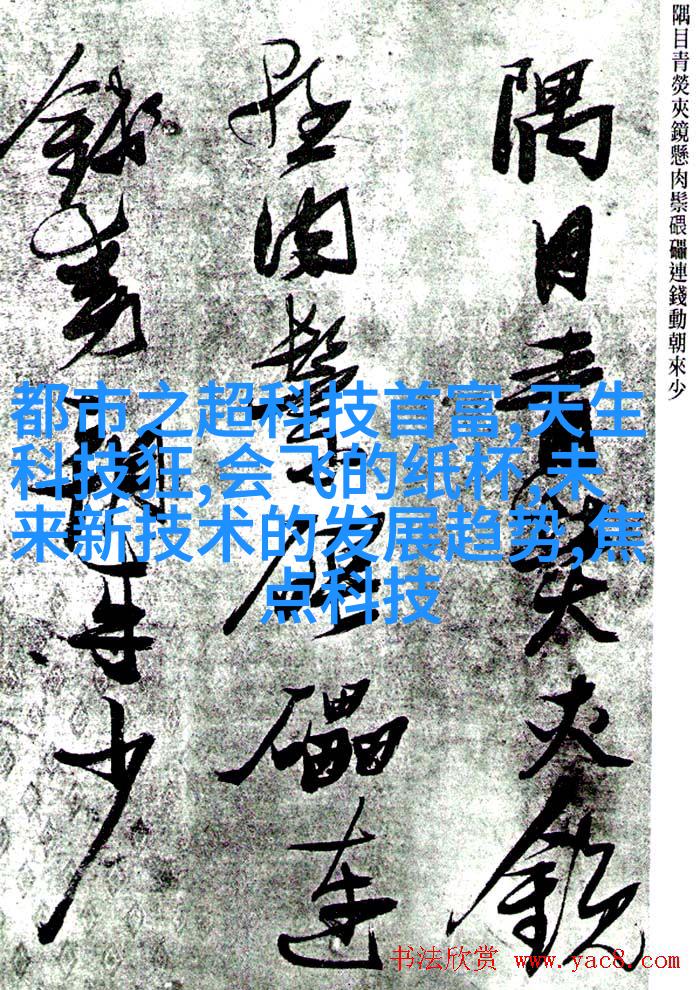 隅目青熒夾鏡懸肉鬃碨礌連錢動朝來少
隅目青熒夾鏡
懸肉鬃碨礌連
錢動朝來少
都市之超科技首富,天生
科技狂,会飞的纸杯,未
来新技术的发展趋势,焦
点科技
书法欣赏 www.yac8.com